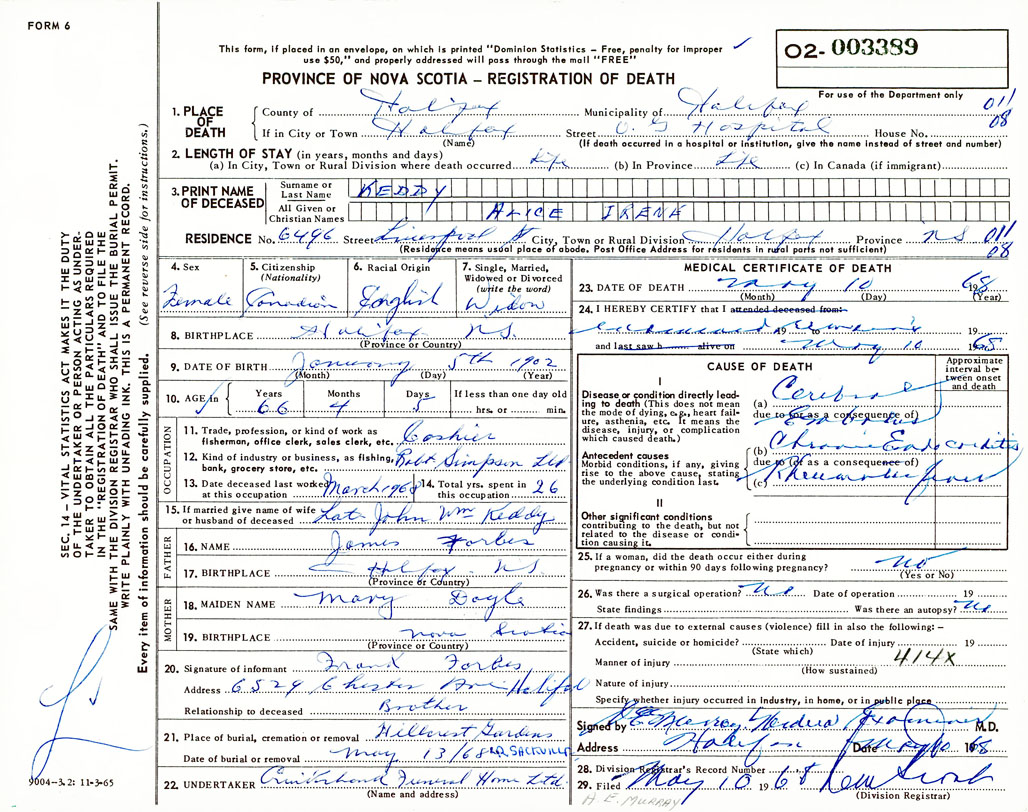 FORM 6
This form, if placed in an envelope, on which is printed "Dominion Statistics – Free, penalty for improper
use $50," and properly addressed will pass through the mail "FREE"
O2- 003389
For use of the Department only
PROVINCE OF NOVA SCOTIA – REGISTRATION OF DEATH
1. PLACE OF DEATH County of Halifax Municipality of Halifax 011
If in City or Town Halifax Street V. G Hospital House No. 08
(Name) (If death occurred in a hospital or institution, give the name instead of street and number)
2. LENGTH OF STAY (in years, months and days)
(a) In City, Town or Rural Division where death occurred Life (b) In Province Life (c) In Canada (if immigrant)
3. PRINT NAME OF DECEASED Surname or Last Name KEDDY
All Given or Christian Names ALICE IRENE
RESIDENCE No. 6496 Street Liverpool St City, Town or Rural Division Halifax Province NS 011
(Residence means usual place of abode. Post Office Address for residents in rural parts not sufficient) 08
4. Sex Female
5. Citizenship (Nationality) Canadian
6. Racial Origin English
7. Single, Married, Widowed or Divorced (write the word) Widow
8. BIRTHPLACE Halifax NS.
(Province or Country)
9. DATE OF BIRTH January 5th 1902
(Month) (Day) (Year)
10. AGE in Years 66 Months 4 Days 5 If less than one day old hrs. or min.
OCCUPATION
11. Trade, profession, or kind of work as fisherman, office clerk, sales clerk, etc. Cashier
12. Kind of industry or business, as fishing, bank, grocery store, etc. Robt Simpson Ltd
13. Date deceased last worked at this occupation March 1968 14. Total yrs. spent in this occupation 26
15. If married give name of wife or husband of deceased Late John Wm Keddy
FATHER
16. NAME James Forbes
17. BIRTHPLACE Halifax NS.
(Province or Country)
MOTHER
18. MAIDEN NAME Mary Doyle
19. BIRTHPLACE Nova Scotia
(Province or Country)
20. Signature of informant Frank Forbes
Address 6529 Chester Ave Halifax
Relationship to deceased Brother
21. Place of burial, cremation or removal Hillcrest Gardens
Date of burial or removal May 13/68 LR SACKVILLE
22. UNDERTAKER Cruikshank Funeral Home Ltd.
(Name and address)
MEDICAL CERTIFICATE OF DEATH
23. DATE OF DEATH May 10 1968
(Month) (Day) (Year)
24. I HEREBY CERTIFY that I attended deceased from:
examined remains 19 to 19
and last saw h alive on May 10 1968
CAUSE OF DEATH
Approximate interval between onset and death
I
Disease or condition directly leading to death (This does not mean the mode of dying, e.g., heart failure, asthenia, etc. It means the disease, injury, or complication which caused death.)
(a) Cerebral
due to (or as a consequence of)
Embolus
Antecedent causes
Morbid conditions, if any, giving rise to the above cause, stating the underlying condition last.
(b) Chronic Endocarditis
due to (or as a consequence of)
(c) Rheumatic fever
II
Other significant conditions contributing to the death, but not related to the disease or condition causing it.
25. If a woman, did the death occur either during pregnancy or within 90 days following pregnancy? No
(Yes or No)
26. Was there a surgical operation? No Date of operation 19
State findings Was there an autopsy? No
27. If death was due to external causes (violence) fill in also the following: –
Accident, suicide or homicide? Date of injury 19
(State which)
Manner of injury 414X
(How sustained)
Nature of injury
Specify whether injury occurred in industry, in home, or in public place
Signed by H E Murray Medical Examiner M.D.
Address Halifax Date May 10 1968
28. Division Registrar's Record Number
29. Filed May 10 1968
(Division Registrar)
H E. MURRAY
SEC. 14 – VITAL STATISTICS ACT MAKES IT THE DUTY
OF THE UNDERTAKER OR PERSON ACTING AS UNDER-
TAKER TO OBTAIN ALL THE PARTICULARS REQUIRED
IN THE "REGISTRATION OF DEATH" AND TO FILE THE
SAME WITH THE DIVISION REGISTRAR WHO SHALL ISSUE THE BURIAL PERMIT.
WRITE PLAINLY WITH UNFADING INK. THIS IS A PERMANENT RECORD.
Every item of information should be carefully supplied. (See reverse side for instructions.)
9004-3.2: 11-3-65